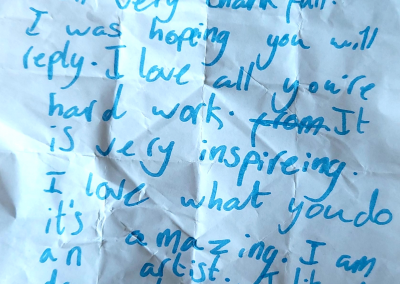 very thank full.
I was hopeing you will
reply. I love all you're
hard work. from It
is very inspireing.
I love what you do
it's amazing. I am
an artist.